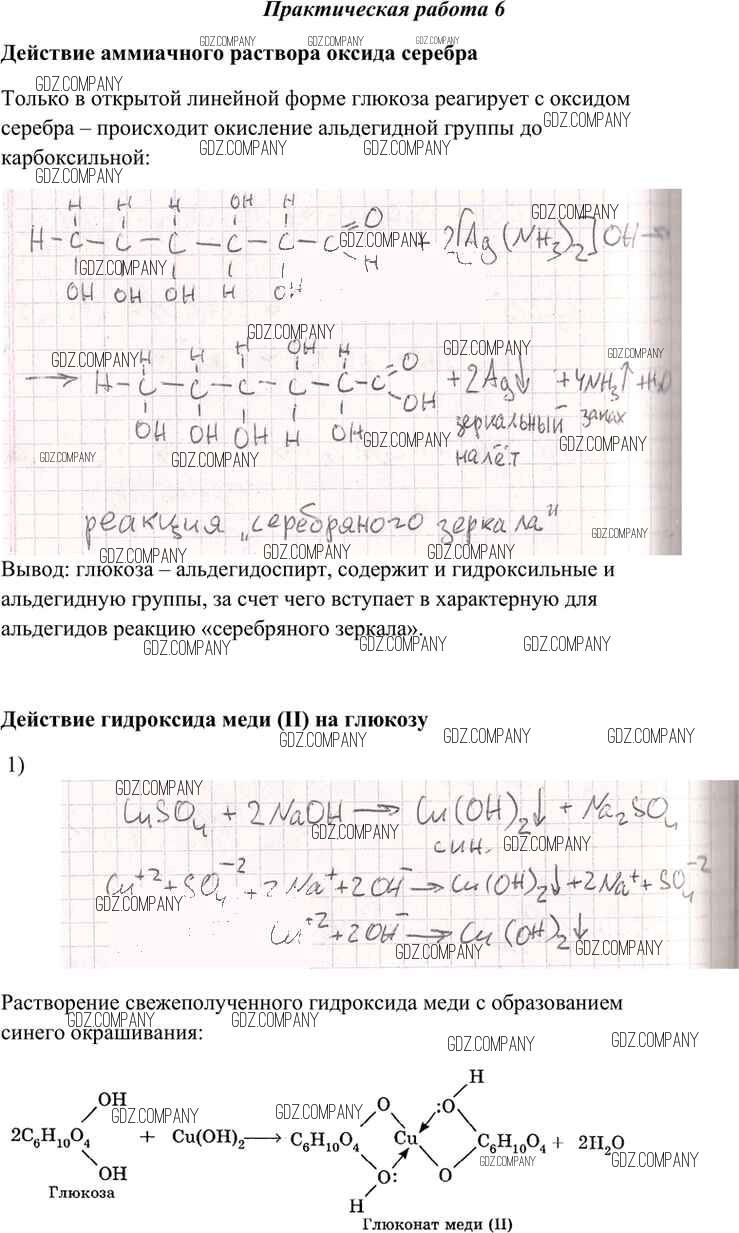 Практическая работа 6
GDZ.COMPANY GDZ.COMPANY GDZ.COMPANY
Действие аммиачного раствора оксида серебра
GDZ.COMPANY
Только в открытой линейной форме глюкоза реагирует с оксидом
серебра – происходит окисление альдегидной группы до
GDZ.COMPANY
карбоксильной:
GDZ.COMPANY GDZ.COMPANY GDZ.COMPANY
GDZ.COMPANY
H H H OH H O
GDZ.COMPANY
H – C – C – C – C – C – C + 2[Ag(NH3)2]OH →
GDZ.COMPANY
H
GDZ.COMPANY
OH OH OH H OH
GDZ.COMPANY
GDZ.COMPANY GDZ.COMPANY GDZ.COMPANY
H H H OH H O
→ H – C – C – C – C – C – C + 2Ag↓ + 4NH3↑ + H2O
GDZ.COMPANY GDZ.COMPANY
OH
зеркальный запах
OH OH OH H OH
GDZ.COMPANY GDZ.COMPANY
налёт
GDZ.COMPANY GDZ.COMPANY
реакция „серебряного зеркала"
GDZ.COMPANY
GDZ.COMPANY GDZ.COMPANY GDZ.COMPANY
Вывод: глюкоза – альдегидоспирт, содержит и гидроксильные и
альдегидную группы, за счет чего вступает в характерную для
альдегидов реакцию «серебряного зеркала».
GDZ.COMPANY GDZ.COMPANY GDZ.COMPANY
Действие гидроксида меди (II) на глюкозу
GDZ.COMPANY GDZ.COMPANY GDZ.COMPANY
1)
GDZ.COMPANY
CuSO4 + 2NaOH → Cu(OH)2↓ + Na2SO4
GDZ.COMPANY
син.
GDZ.COMPANY
Cu+2 + SO4-2 + 2Na+ + 2OH- → Cu(OH)2↓ + 2Na+ + SO4-2
GDZ.COMPANY
Cu+2 + 2OH- → Cu(OH)2↓
GDZ.COMPANY GDZ.COMPANY
Растворение свежеполученного гидроксида меди с образованием
GDZ.COMPANY GDZ.COMPANY
синего окрашивания:
GDZ.COMPANY GDZ.COMPANY
H
OH O :O
GDZ.COMPANY GDZ.COMPANY
2C6H10O4 + Cu(OH)2 → C6H10O4 Cu C6H10O4 + 2H2O
GDZ.COMPANY GDZ.COMPANY
OH O: O
Глюкоза
H
Глюконат меди (II)